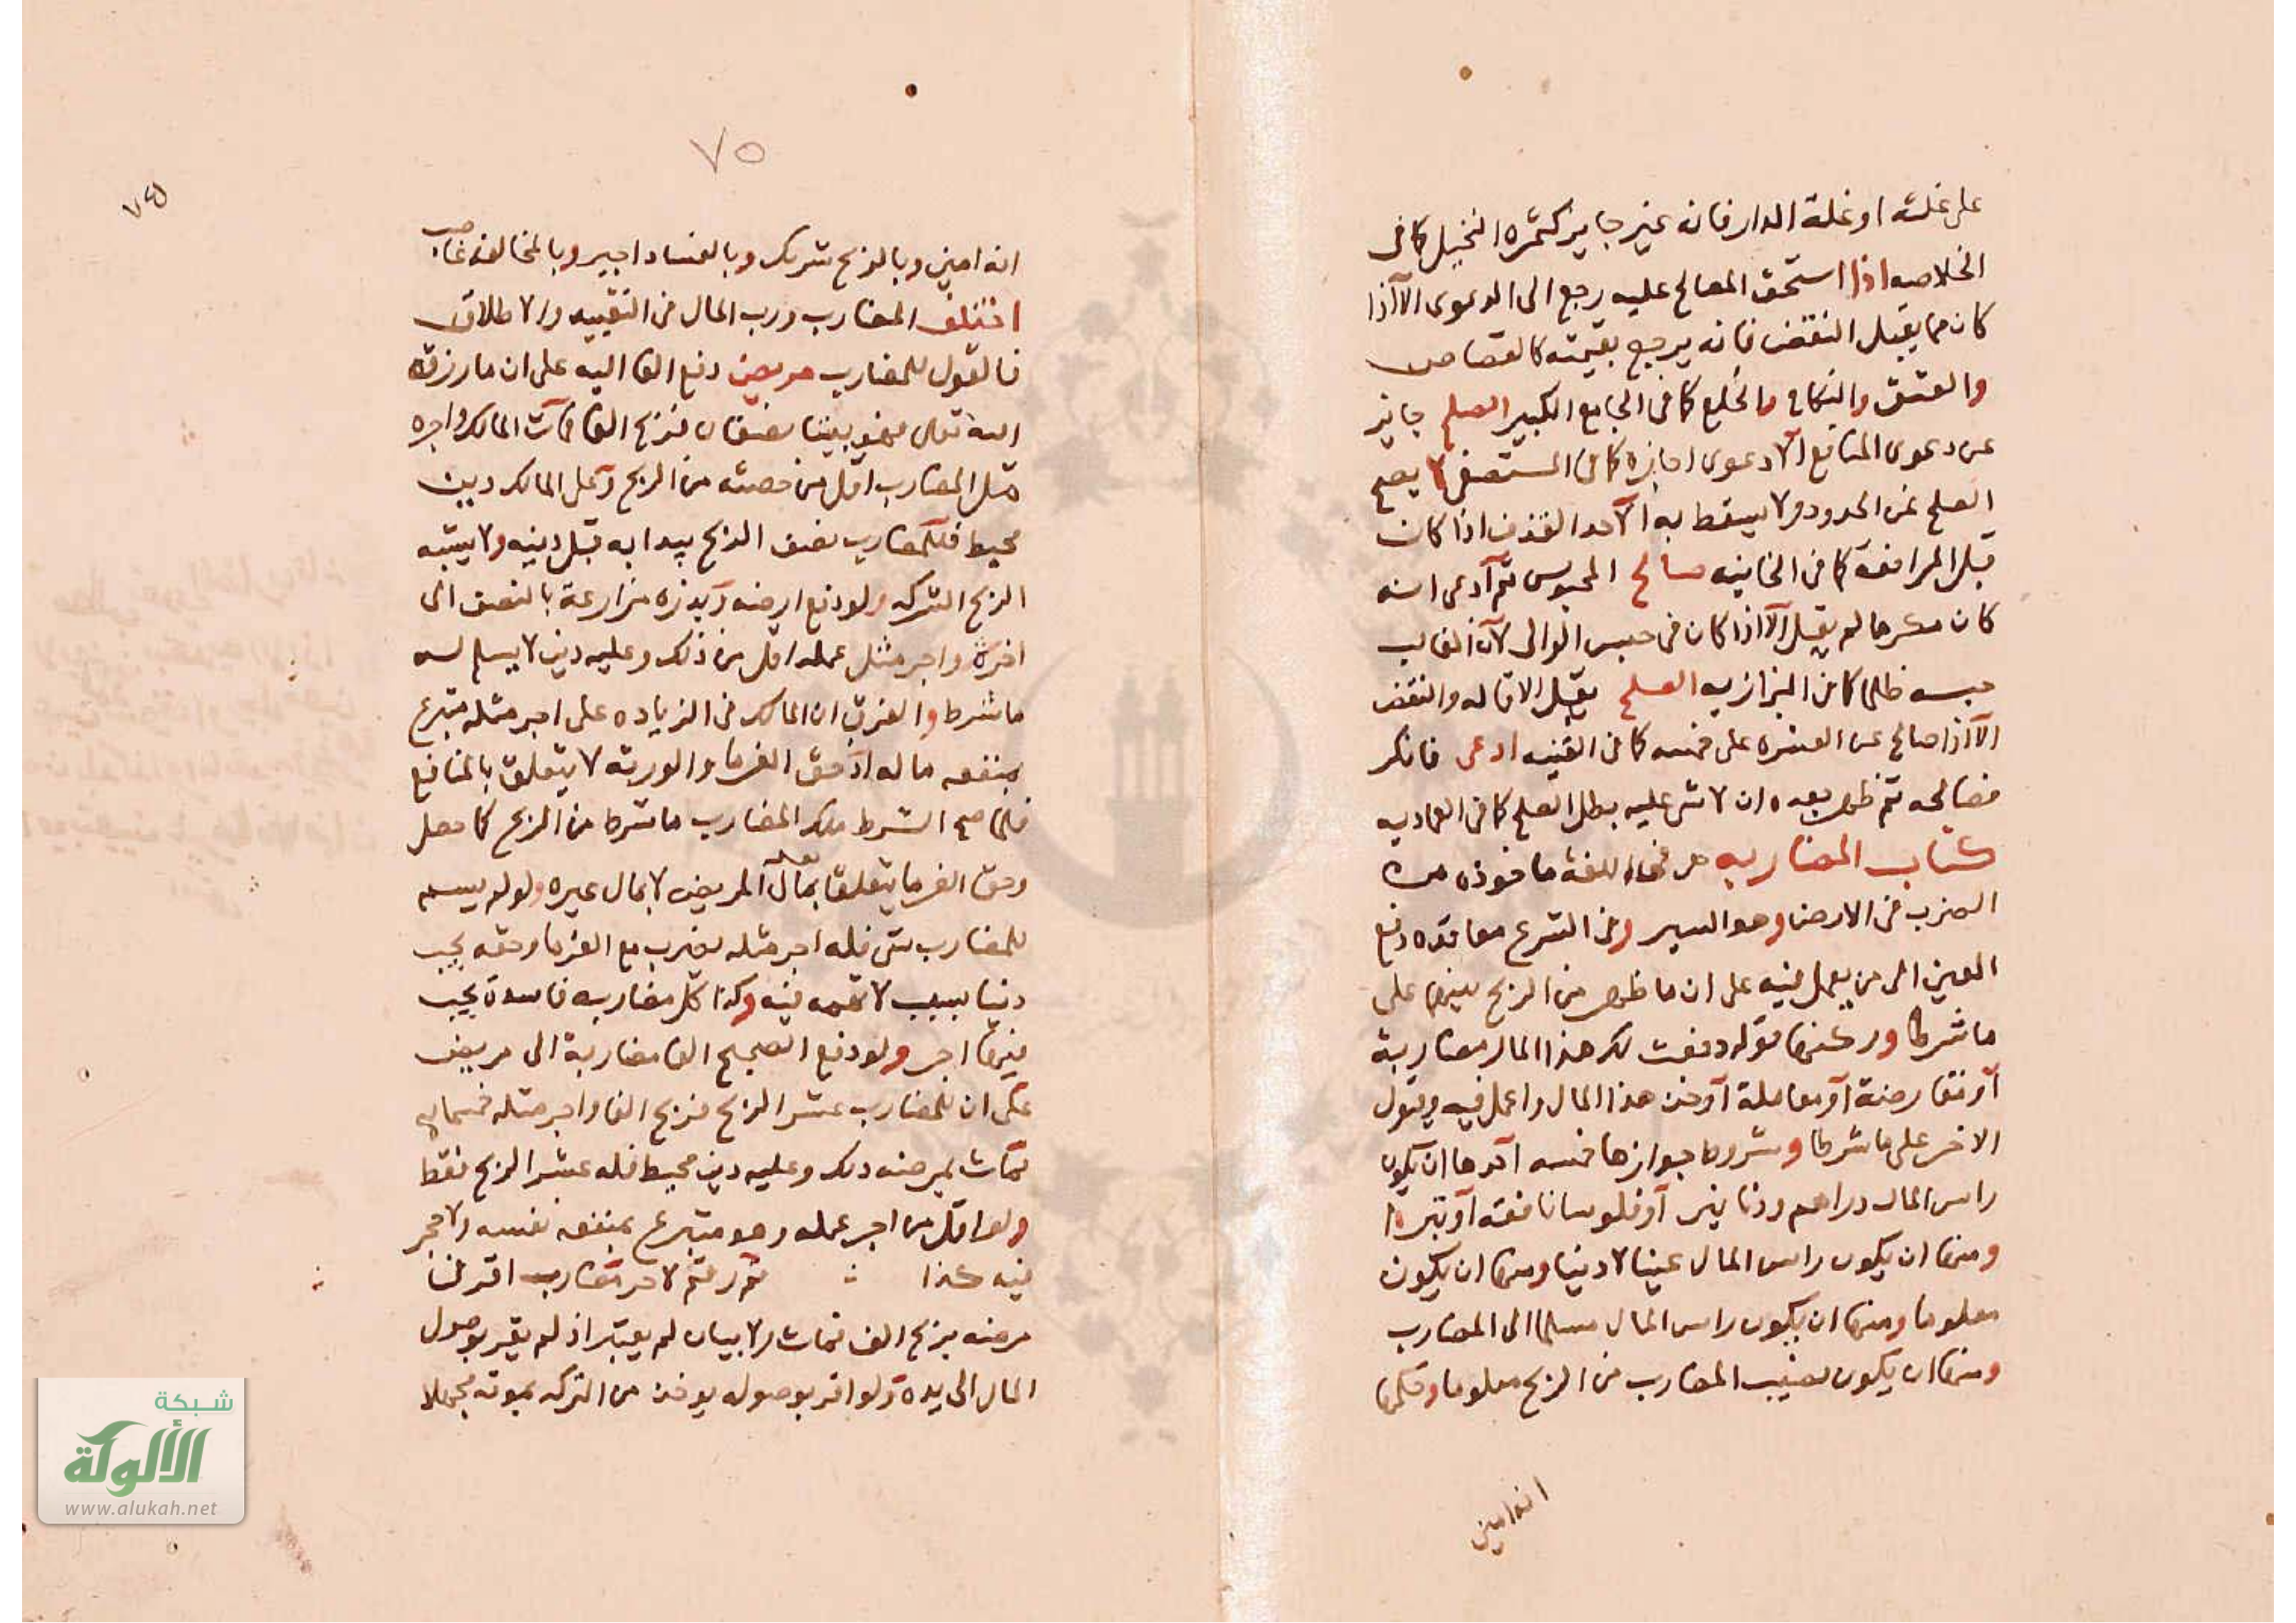 على غلته او غلة الدار فانه غير جايز كثمرة النخيل كما فى
الخلاصه اذا استحق المصالح عليه رجع الى الدعوى الا اذا
كان مما يقبل النقض فانه يرجع بقيمته كالقصاص
والعتق والنكاح والخلع كما فى الجامع الكبير الصلح جايز
عن دعوى المنافع الا دعوى اجازه كما فى المستصفى لا يصح
الصلح عن الحدود ولا يسقط به الا حد القذف اذا كان
قبل المرافعه كما فى الخانيه صالح المحبوس ثم ادعى انه
كان مكرها لم يقبل الا اذا كان فى حبس الوالى لان الغالب
حبسه ظلما كما فى البزازيه الصلح يقبل الاقاله والنقض
الا اذا صالح عن العشره على خمسه كما فى القنيه ادعى فانكر
فصالحه ثم ظهر بعده ان لا شى عليه بطل الصلح كما فى العماديه
كتاب المضاربه هى فى اللغة ماخوذه من
الضرب فى الارض وهو السير وفى الشرع معاقده دفع
العين الى من يعمل فيه على ان ما ظهر من الربح بينهما على
ما شرطا وركنها قوله دفعت لك هذا المال مضاربة
او مقارضة او معاملة او خذ هذا المال واعمل فيه ويقول
الاخر على ما شرطا وشروط جوازها خمسه احدها ان يكون
راس المال دراهم ودنانير او فلوسا نافقه او تبرا
ومنها ان يكون راس المال عينا لا دينا ومنها ان يكون
معلوما ومنها ان يكون راس المال مسلما الى المضارب
ومنها ان يكون نصيب المضارب من الربح معلوما وحكمها
انه امين
٧٥
٧٤
انه امين وبالربح شريك وبالفساد اجير وبالمخالفه غاصب
اختلف المضارب ورب المال فى التقييد والاطلاق
فالقول للمضارب مريض دفع الفا اليه على ان ما رزقه
الله تعالى فهو بيننا نصفان فربح الفا فمات المالك واجره
مثل المضارب اقل من حصته من الربح وعلى المالك دين
محيط فللمضارب نصف الربح يبدا به قبل دينه ولا يشبه
الربح الشركه ولو دفع ارضه وبذره مزارعة بالنصف الى
اخره واجر مثل عمله اقل من ذلك وعليه دين لا يسلم له
ما شرط والفرق ان المالك فى الزياده على اجر مثله متبرع
بمنفعه ماله اذ حق الغرما والورثه لا يتعلق بالمنافع
فلما صح الشرط ملك المضارب ما شرط من الربح كما حصل
وحق الغرما يتعلق بمال المريض لا بمال غيره ولو لم يسم
للمضارب شى فله اجر مثله يضرب مع الغرما وحقه يجب
دينا بسبب لا تهمه فيه وكذا كل مضاربه فاسدة يجب
فيها اجر ولو دفع الصحيح الفا مضاربة الى مريض
على ان للمضارب عشر الربح فربح الفا واجر مثله خمسمايه
فمات بمرضه ذلك وعليه دين محيط فله عشر الربح فقط
ولو اقل من اجر عمله وهو متبرع بمنفعه نفسه ولا حجر
فيه كذا مضارب اقر فى
مرضه بربح الف فمات ولا بيان لم يعتبر اذ لم يقر بوصول
المال الى يده ولو اقر بوصوله يوخذ من التركه بموته مجهلا
شبكة
الألوكة
www.alukah.net